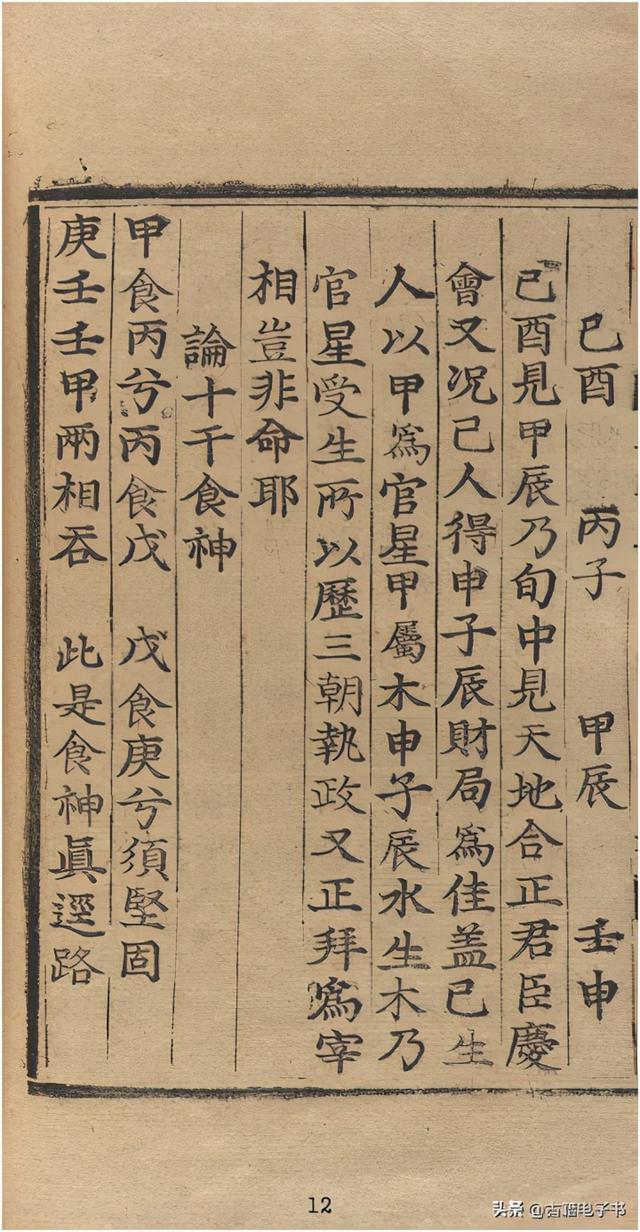 己酉 丙子 甲辰 壬申
己酉見甲辰乃旬中見天地合正君臣慶
會又况己人得申子辰財局爲佳盖己生
人以甲爲官星甲屬木申子辰水生木乃
官星受生所以歷三朝執政又正拜爲宰
相豈非命耶
論十干食神
甲食丙兮丙食戊 戊食庚兮須堅固
庚壬壬甲兩相吞 此是食神眞逕路
12
头条@古籍电子书